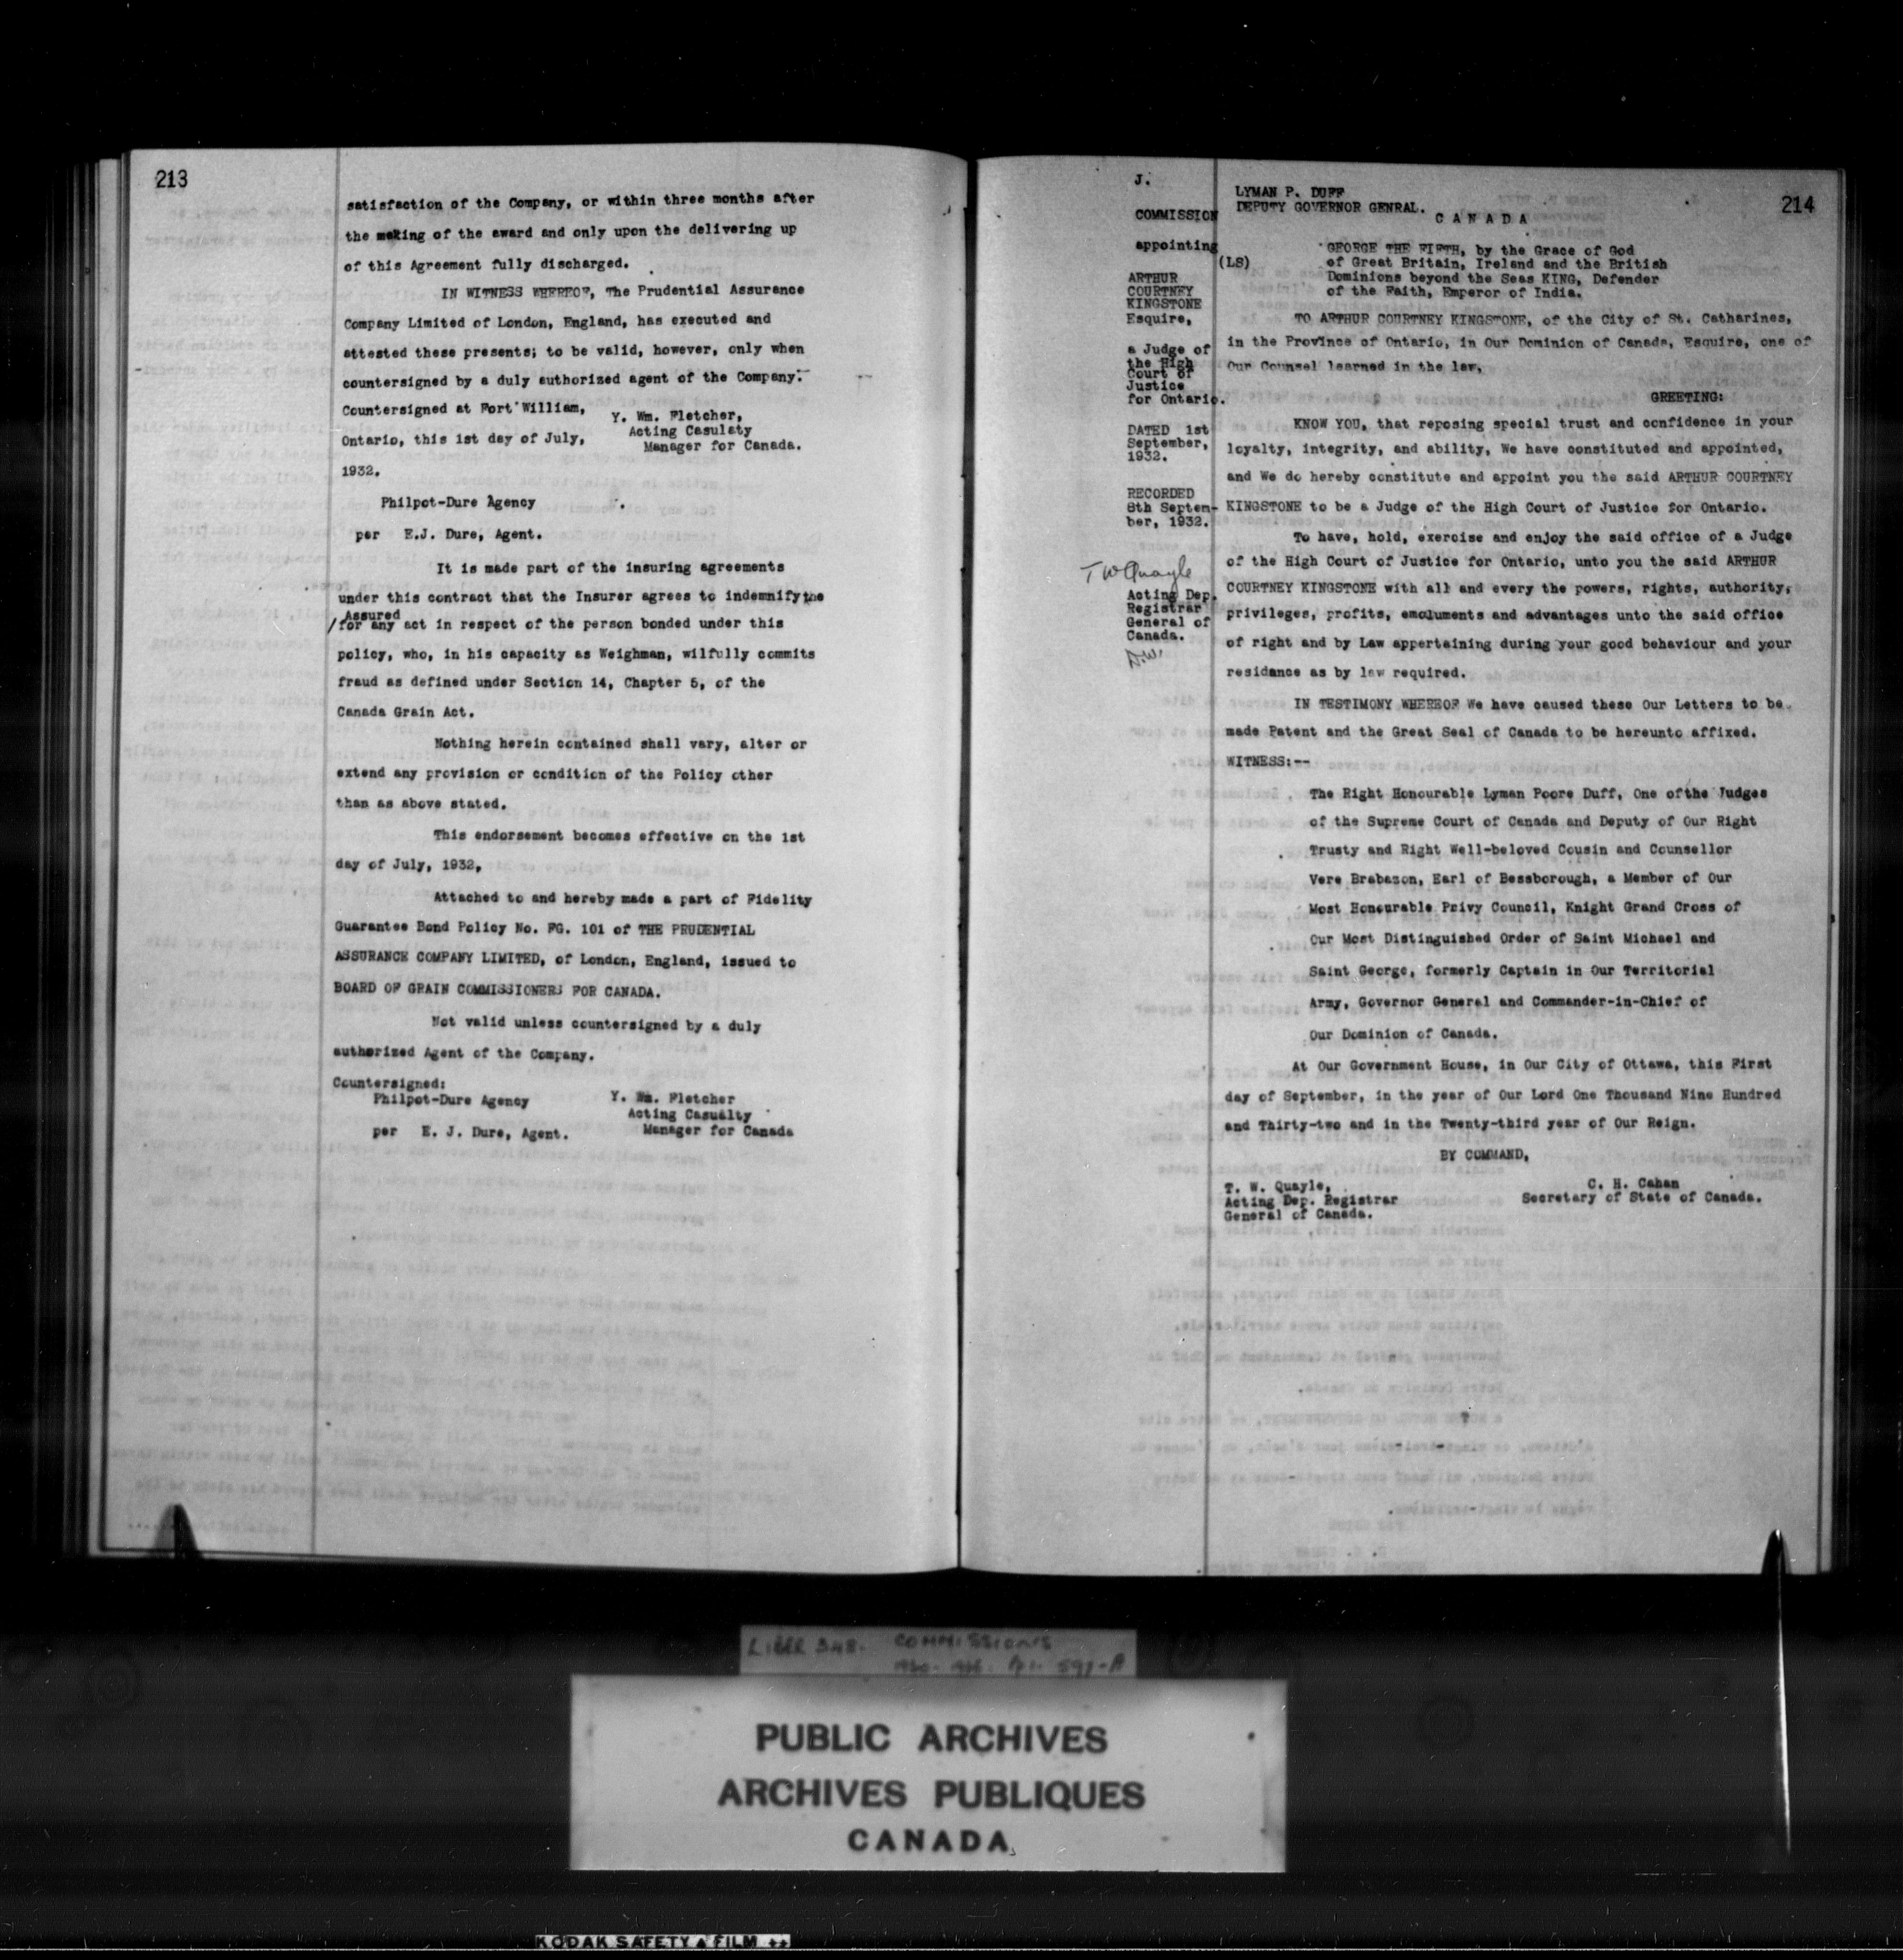 213
satisfaction of the Company, or within three months after
the making of the award and only upon the delivering up
of this Agreement fully discharged.
IN WITNESS WHEREOF, The Prudential Assurance
Company Limited of London, England, has executed and
attested these presents; to be valid, however, only when
countersigned by a duly authorized agent of the Company.
Countersigned at Fort William,
Ontario, this 1st day of July,
1932.
Y. Wm. Fletcher,
Acting Casulaty
Manager for Canada.
Philpot-Dure Agency
per E.J. Dure, Agent.
It is made part of the insuring agreements
under this contract that the Insurer agrees to indemnify the
Assured
/for any act in respect of the person bonded under this
policy, who, in his capacity as Weighman, wilfully commits
fraud as defined under Section 14, Chapter 5, of the
Canada Grain Act.
Nothing herein contained shall vary, alter or
extend any provision or condition of the Policy other
than as above stated.
This endorsement becomes effective on the 1st
day of July, 1932,
Attached to and hereby made a part of Fidelity
Guarantee Bond Policy No. FG. 101 of THE PRUDENTIAL
ASSURANCE COMPANY LIMITED, of London, England, issued to
BOARD OF GRAIN COMMISSIONERS FOR CANADA.
Not valid unless countersigned by a duly
authorized Agent of the Company.
Countersigned:
Philpot-Dure Agency
per E. J. Dure, Agent.
Y. Wm. Fletcher
Acting Casualty
Manager for Canada
214
J.
COMMISSION
appointing
ARTHUR
COURTNEY
KINGSTONE
Esquire,
a Judge of
the High
Court of
Justice
for Ontario.
DATED 1st
September,
1932.
RECORDED
8th Septem-
ber, 1932.
T W Quayle
Acting Dep.
Registrar
General of
Canada.
LYMAN P. DUFF
DEPUTY GOVERNOR GENRAL.
CANADA
(LS)
GEORGE THE FIFTH, by the Grace of God
of Great Britain, Ireland and the British
Dominions beyond the Seas KING, Defender
of the Faith, Emperor of India.
TO ARTHUR COURTNEY KINGSTONE, of the City of St. Catharines,
in the Province of Ontario, in Our Dominion of Canada, Esquire, one of
Our Counsel learned in the law,
GREETING:
KNOW YOU, that reposing special trust and confidence in your
loyalty, integrity, and ability, We have constituted and appointed,
and We do hereby constitute and appoint you the said ARTHUR COURTNEY
KINGSTONE to be a Judge of the High Court of Justice for Ontario.
To have, hold, exercise and enjoy the said office of a Judge
of the High Court of Justice for Ontario, unto you the said ARTHUR
COURTNEY KINGSTONE with all and every the powers, rights, authority,
privileges, profits, emoluments and advantages unto the said office
of right and by Law appertaining during your good behaviour and your
residance as by law required.
IN TESTIMONY WHEREOF We have caused these Our Letters to be
made Patent and the Great Seal of Canada to be hereunto affixed.
WITNESS:--
The Right Honourable Lyman Poore Duff, One ofthe Judges
of the Supreme Court of Canada and Deputy of Our Right
Trusty and Right Well-beloved Cousin and Counsellor
Vere Brabazon, Earl of Bessborough, a Member of Our
Most Honourable Privy Council, Knight Grand Cross of
Our Most Distinguished Order of Saint Michael and
Saint George, formerly Captain in Our Territorial
Army, Governor General and Commander-in-Chief of
Our Dominion of Canada.
At Our Government House, in Our City of Ottawa, this First
day of September, in the year of Our Lord One Thousand Nine Hundred
and Thirty-two and in the Twenty-third year of Our Reign.
BY COMMAND,
T. W. Quayle,
Acting Dep. Registrar
General of Canada.
C. H. Cahan
Secretary of State of Canada.
LIBER 348. COMMISSIONS
597-A
PUBLIC ARCHIVES
ARCHIVES PUBLIQUES
CANADA
KODAK SAFETY FILM